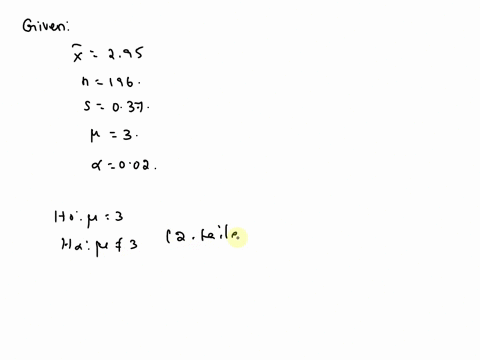 Given:
x̄ = 2.95
n = 196.
s = 0.37.
μ = 3.
α = 0.02.
H0: μ = 3
Hα: μ ≠ 3 (2. taile